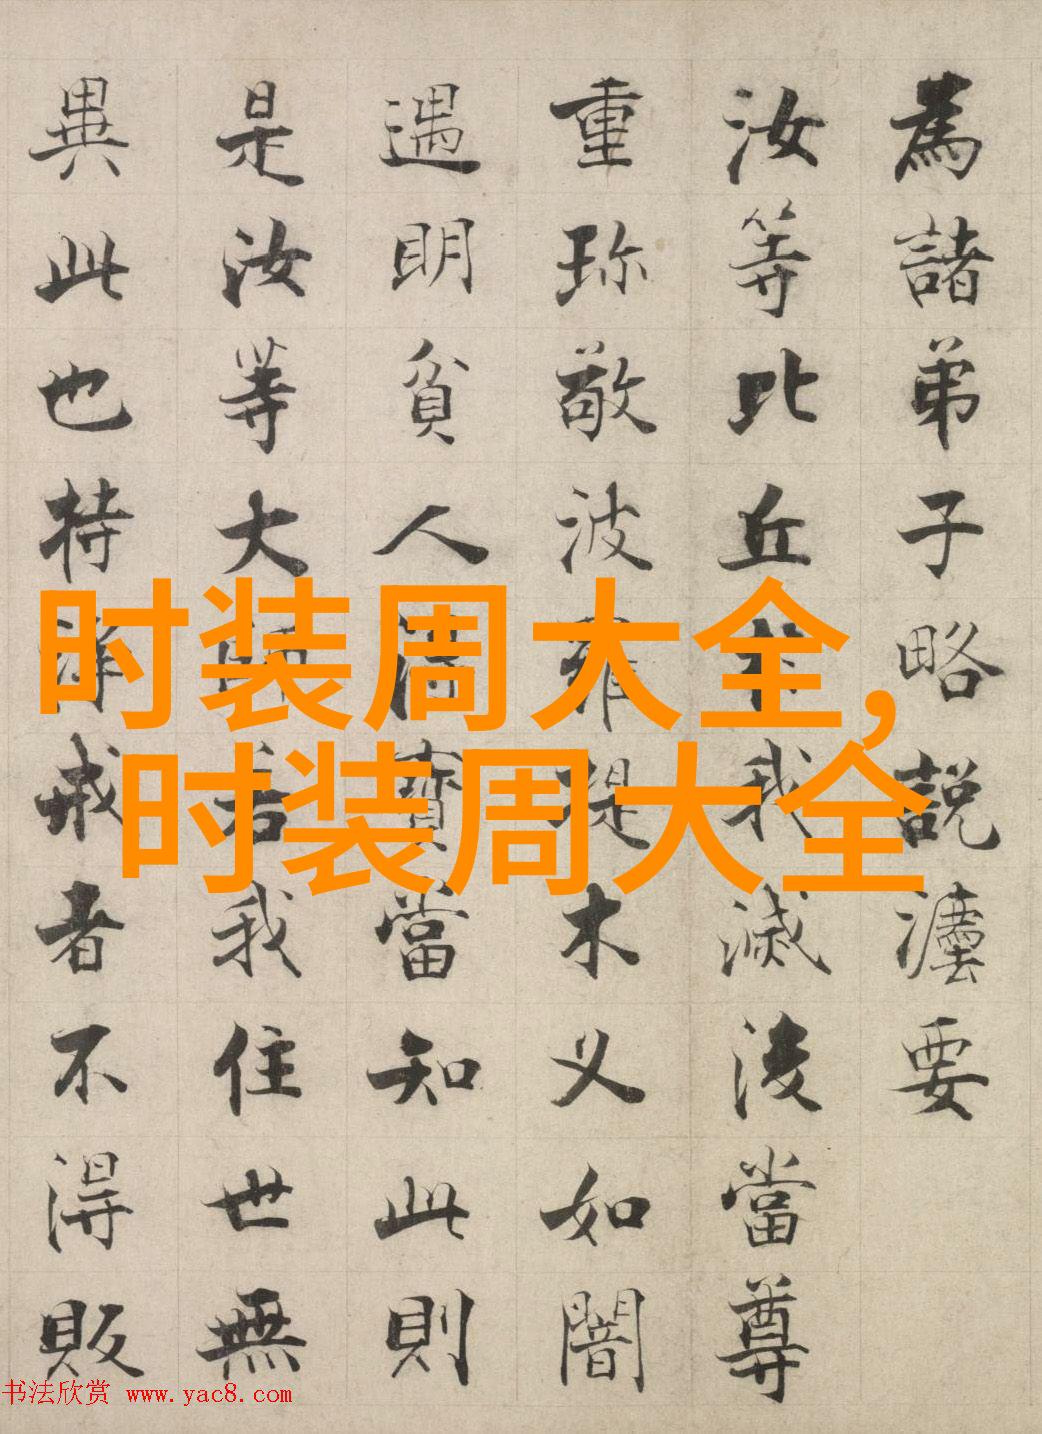 為諸弟子略説灋要
汝等比丘於我滅後當尊
重珎敬波羅提木义如闇
遇明貧人得寳當知此則
是汝等大師若我住世無
異此也持淨戒者不得販
时装周大全,
时装周大全
书法欣赏 www.yac8.com